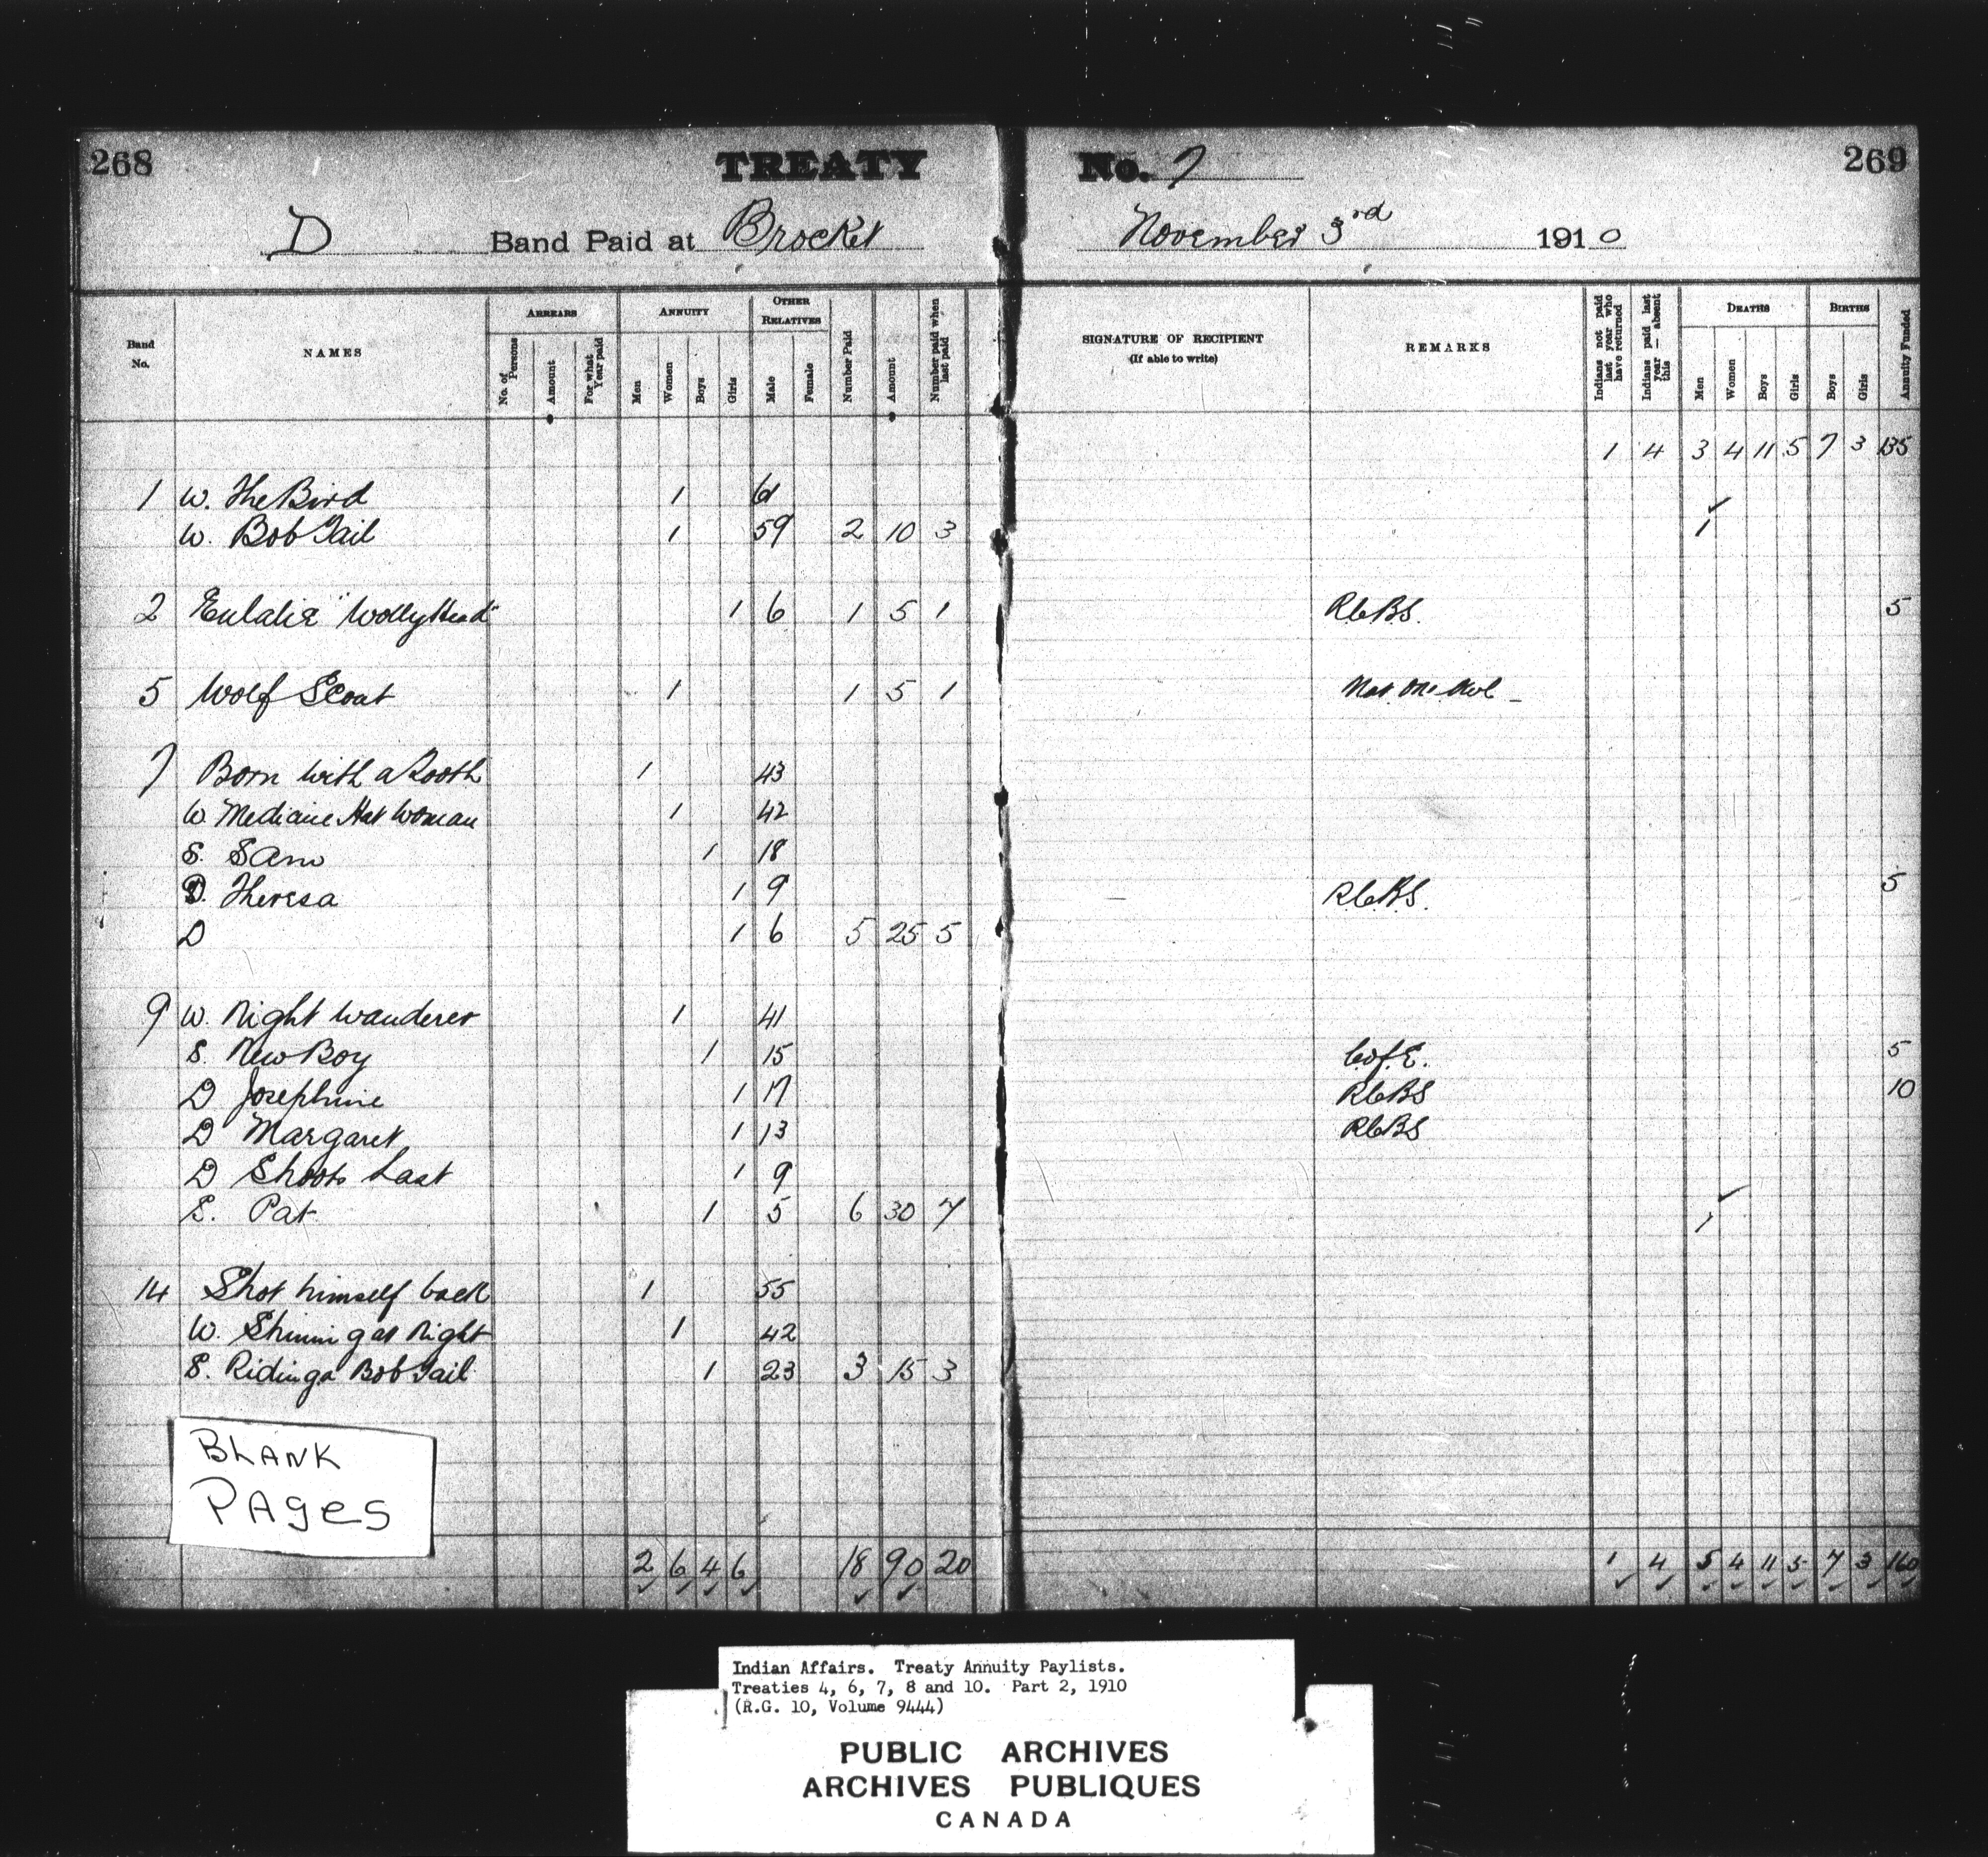 268 TREATY No. 7 269
D Band Paid at Brocket November 3rd 1910
Band No. NAMES ARREARS ANNUITY OTHER RELATIVES SIGNATURE OF RECIPIENT (If able to write) REMARKS DEATHS BIRTHS
No. of Persons Amount For what Year paid Men Women Boys Girls Male Female Number Paid Amount Number paid when last paid Indians not paid last year who have returned Indians paid last year — absent this Men Women Boys Girls Boys Girls Annuity Funded
1 4 3 4 11 5 7 3 135
1 W. The Bird 1 61
W. Bob Tail 1 59 2 10 3 1
2 Eulalia "Wolly Head" 1 6 1 5 1 R.C.B.S. 5
5 Wolf Scoat 1 1 5 1
7 Born with a Tooth 1 43
W Mediciue Hat Woman 1 42
S. Sam 1 18
D. Theresa 1 9 R.C.B.S. 5
D 1 6 5 25 5
9 W. Night Wanderer 1 41
S. New Boy 1 15 C. of E. 5
D Josephine 1 17 RCBS 10
D Margaret 1 13 RCBS
D Shoots Last 1 9
E. Pat 1 5 6 30 7 1
14 Shot himself back 1 55
W. Shining at Night 1 42
S. Riding a Bob Tail 1 23 3 15 3
BLANK
PAges
2 6 4 6 18 90 20 1 4 5 4 11 5 7 3 160
Indian Affairs. Treaty Annuity Paylists.
Treaties 4, 6, 7, 8 and 10. Part 2, 1910
(R.G. 10, Volume 9444)
PUBLIC ARCHIVES
ARCHIVES PUBLIQUES
CANADA